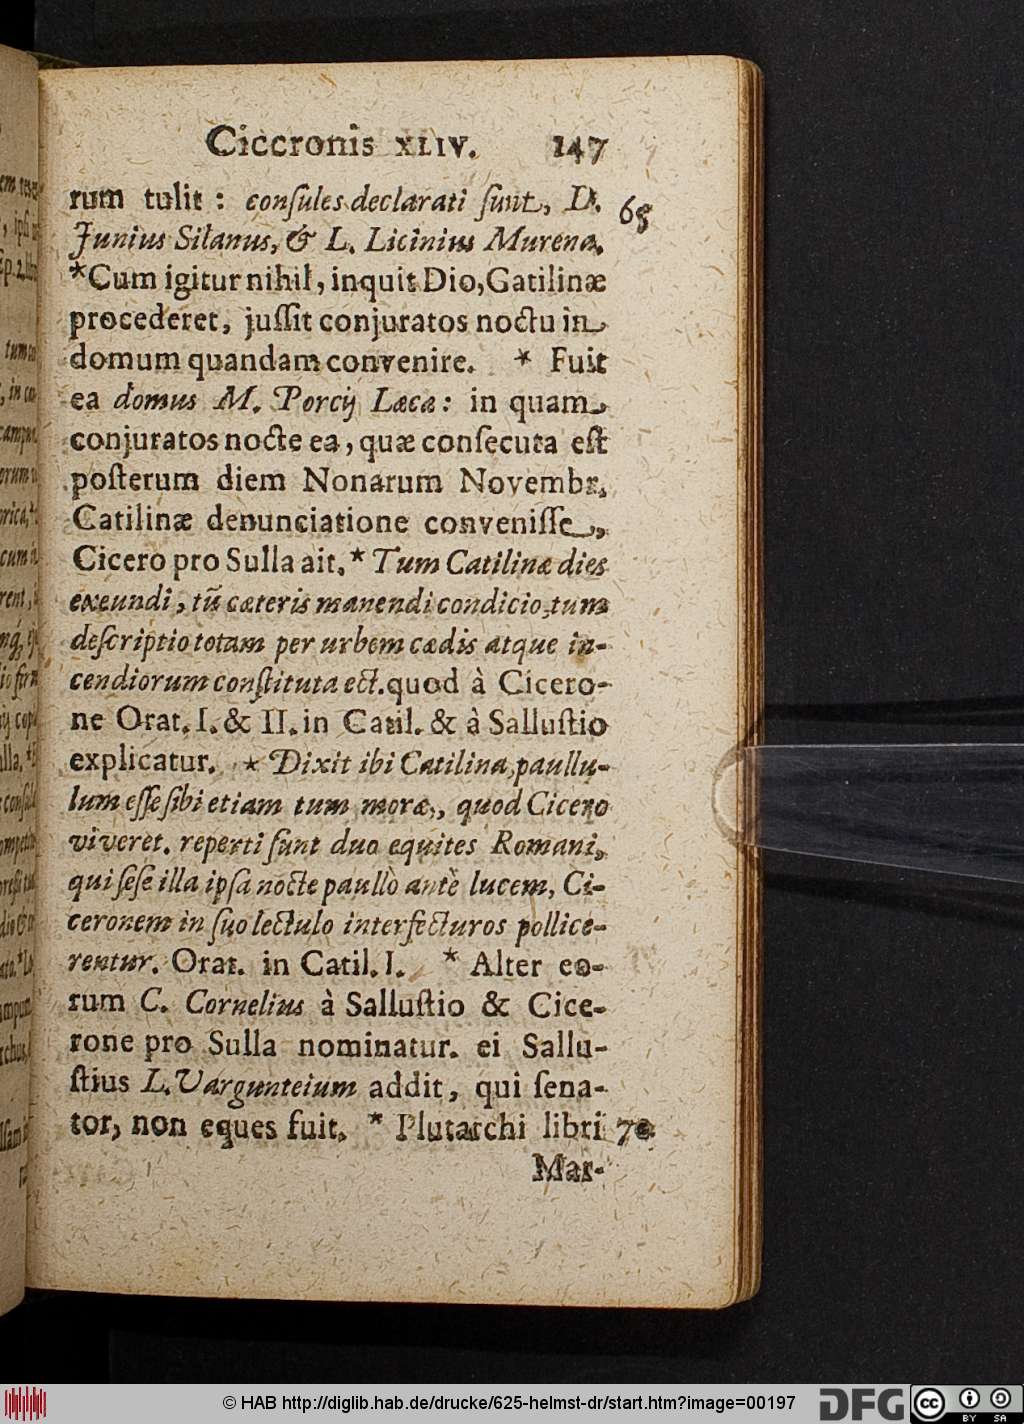 Ciceronis XLIV. 147
rum tulit : conſules declarati ſunt, D. 65
Junius Silanus, & L. Licinius Murena.
*Cum igitur nihil, inquit Dio, Catilinæ
procederet, juſſit conjuratos noctu in
domum quandam convenire. * Fuit
ea domus M. Porcij Læca : in quam
conjuratos nocte ea, quæ conſecuta eſt
poſterum diem Nonarum Novembr.
Catilinæ denunciatione conveniſſe,
Cicero pro Sulla ait. * Tum Catilinæ dies
exeundi, tũ cæteris manendi condicio, tum
deſcriptio totam per urbem cædis atque in-
cendiorum conſtituta eſt. quod à Cicero-
ne Orat. I. & II. in Catil. & à Salluſtio
explicatur. * Dixit ibi Catilina, paullu-
lum eſſe ſibi etiam tum moræ, quod Cicero
viveret. reperti ſunt duo equites Romani,
qui ſeſe illa ipſa nocte paullò antè lucem, Ci-
ceronem in ſuo lectulo interfecturos pollice-
rentur. Orat. in Catil. I. * Alter eo-
rum C. Cornelius à Salluſtio & Cice-
rone pro Sulla nominatur. ei Sallu-
ſtius L. Vargunteium addit, qui ſena-
tor, non eques fuit. * Plutarchi libri 70
Mar-
© HAB http://diglib.hab.de/drucke/625-helmst-dr/start.htm?image=00197
DFG
cc BY SA